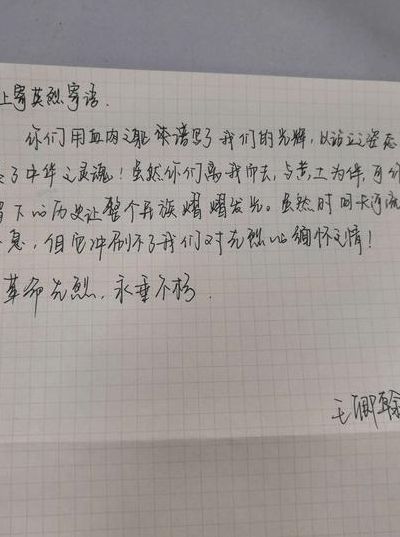 上寄英烈寄语.
你们用血肉之躯来谱写了我们的光辉,以站立之姿态
了中华之灵魂!虽然你们离我而去,与黄土为伴,可你
下的历史让整个民族熠熠发光。虽然时间长河流
息,但它冲刷不了我们对先烈的缅怀之情!
革命先烈,永垂不朽.
王卿翰